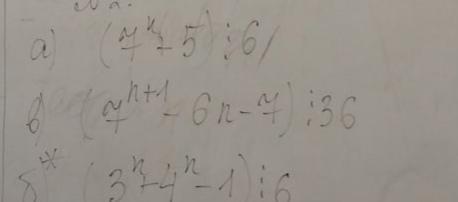 а) (7ⁿ+5)⋮6
в) (7ⁿ⁺¹-6n-7)⋮36
б* (3ⁿ+4ⁿ-1)⋮6